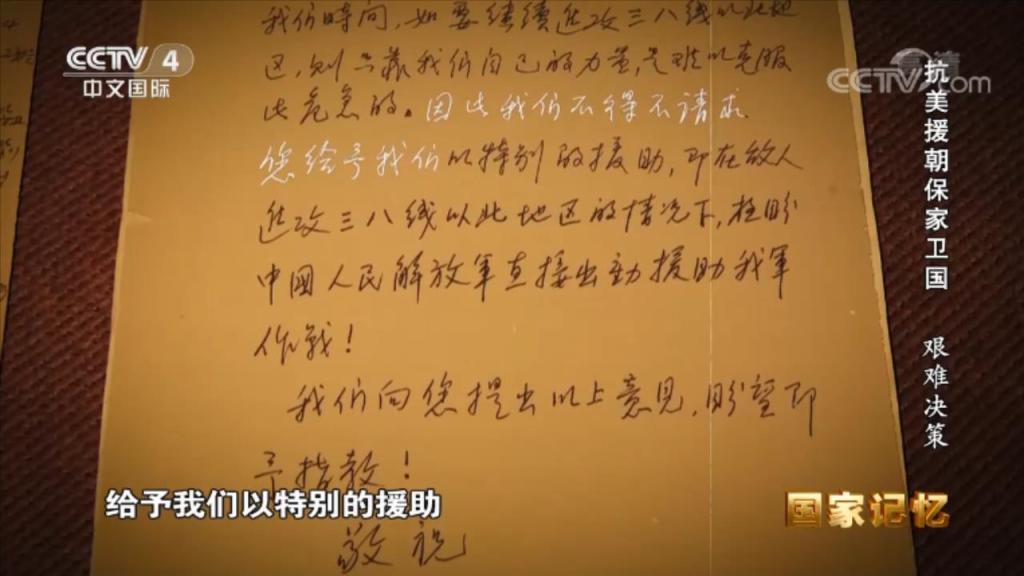 我们时间，如要继续进攻三八线以北地
区，则只靠我们自己的力量，是难以克服
此危急的。因此我们不得不请求
您给予我们以特别的援助，即在敌人
进攻三八线以北地区的情况下，极盼
中國人民解放軍直接出动援助我軍
作战！
我们向您提出以上意见，盼望即
予指教！
敬祝
给予我们以特别的援助
CCTV 4
中文国际
CCTV.com
抗美援朝保家卫国 艰难决策
国家记忆